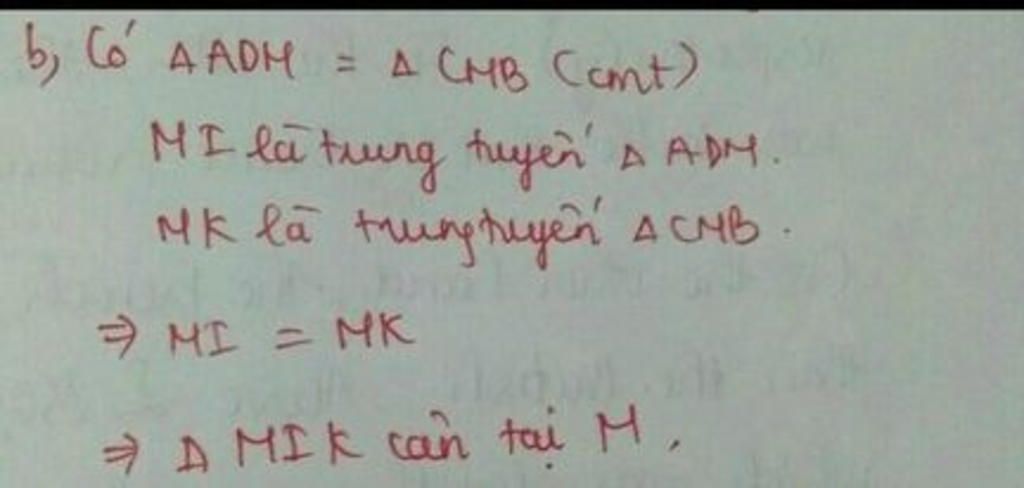 b, Có △ADM = △CMB (cmt)
MI là trung tuyến △ADM.
MK là trung tuyến △CMB.
⇒ MI = MK
⇒ △MIK cân tại M.